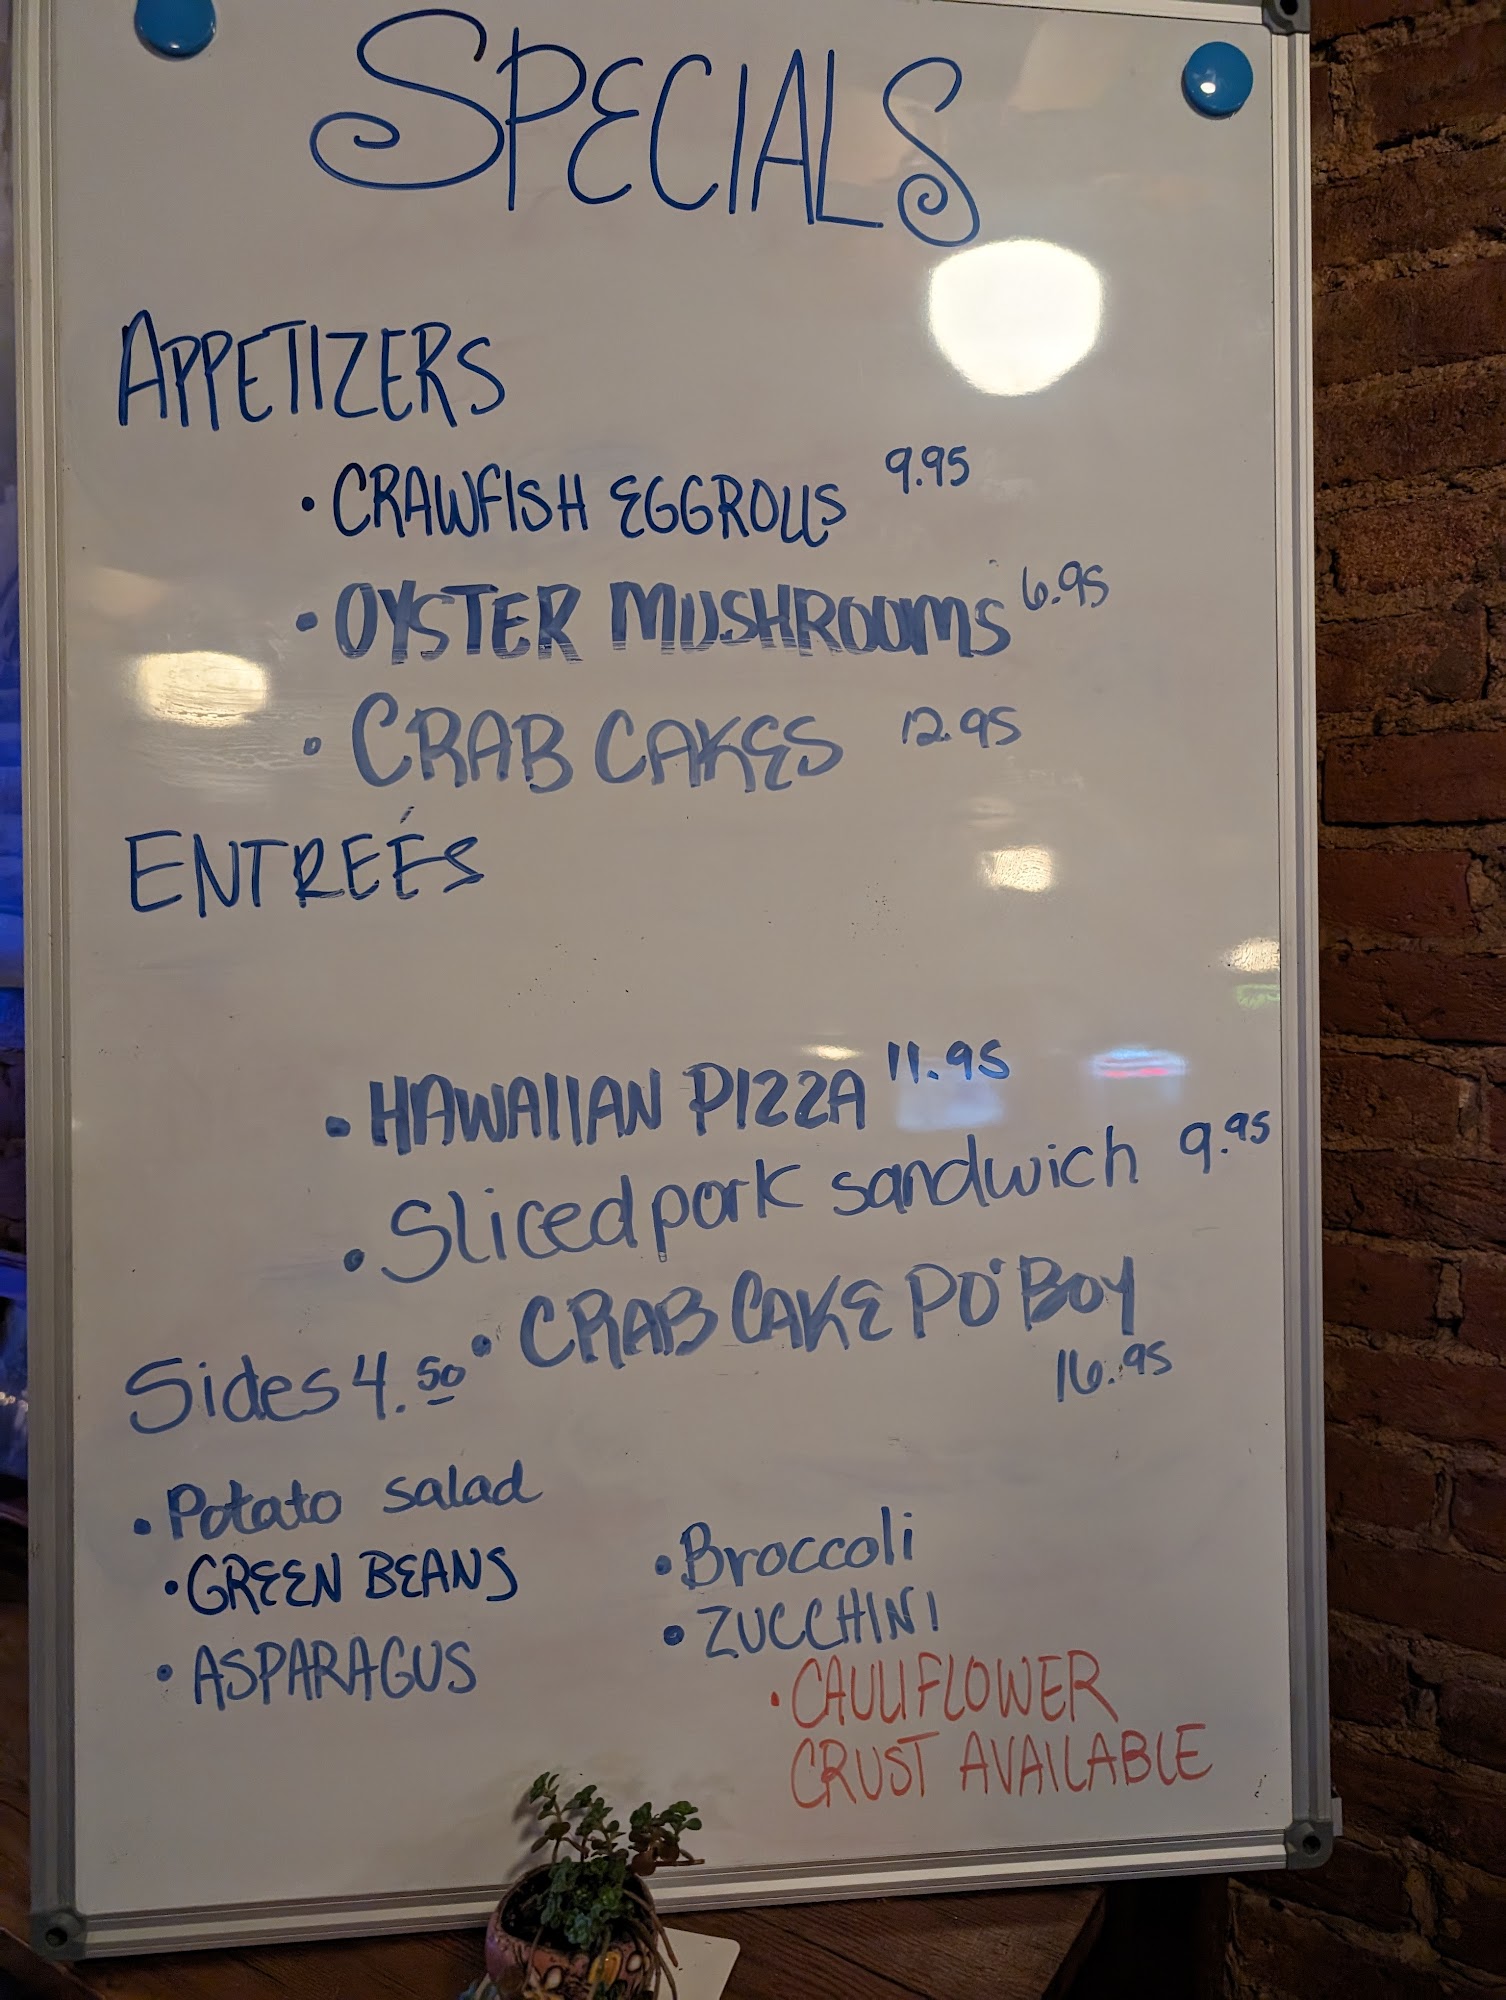 SPECIALS
APPETIZERS
• CRAWFISH EGGROLLS 9.95
• OYSTER MUSHROOMS 6.95
• CRAB CAKES 12.95
ENTREÉS
• HAWAIIAN PIZZA 11.95
• Sliced pork sandwich 9.95
• CRAB CAKE PO'BOY
16.95
Sides 4.50
• Potato salad
• GREEN BEANS
• ASPARAGUS
• Broccoli
• ZUCCHINI
• CAULIFLOWER
CRUST AVAILABLE